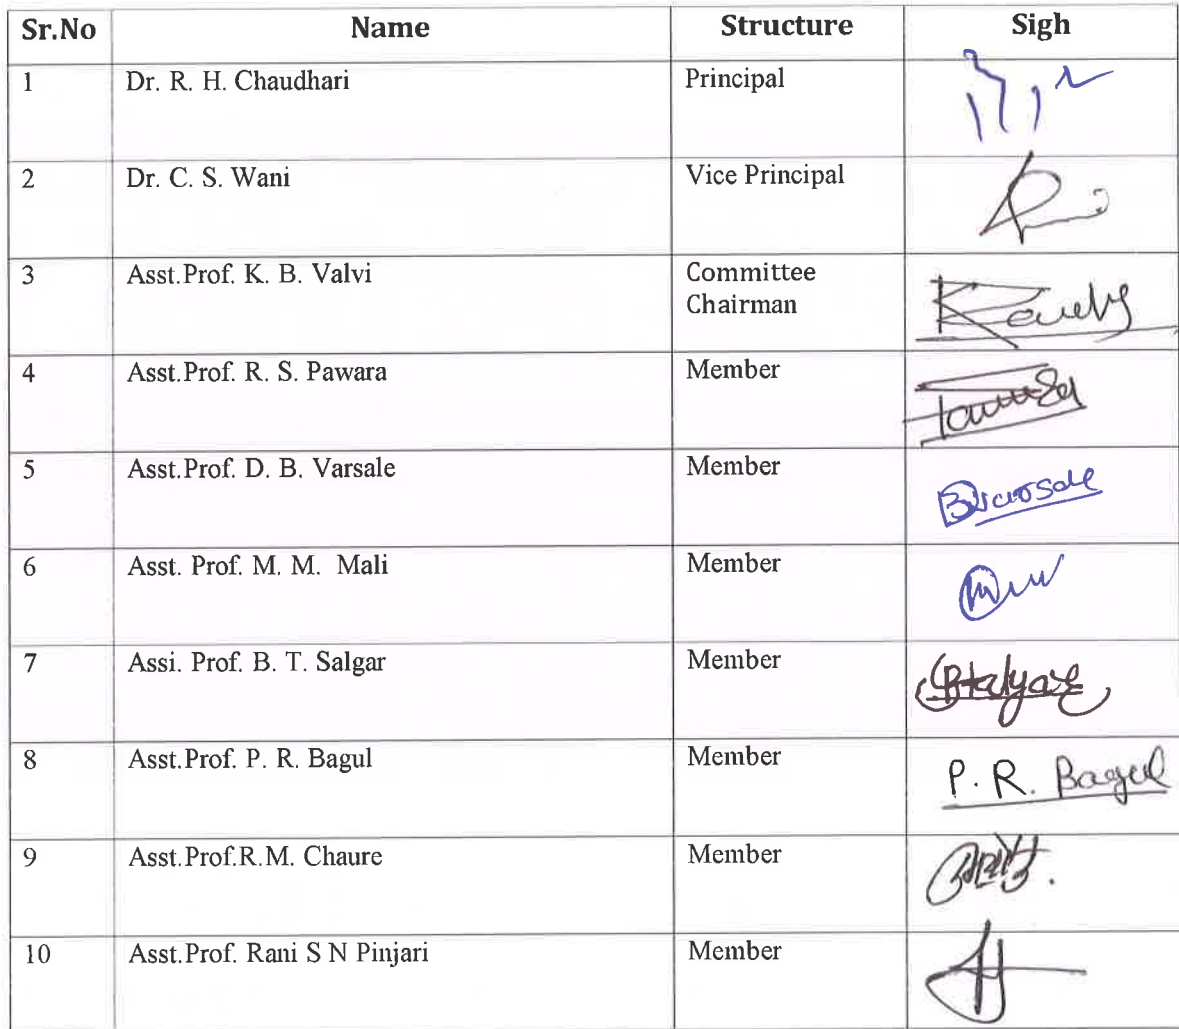 Sr.No Name Structure Sigh
1 Dr. R. H. Chaudhari Principal
2 Dr. C. S. Wani Vice Principal
3 Asst.Prof. K. B. Valvi Committee
Chairman
4 Asst.Prof. R. S. Pawara Member
5 Asst.Prof. D. B. Varsale Member
6 Asst. Prof. M. M. Mali Member
7 Assi. Prof. B. T. Salgar Member
8 Asst.Prof. P. R. Bagul Member P. R. Bagul
9 Asst.Prof.R.M. Chaure Member
10 Asst.Prof. Rani S N Pinjari Member